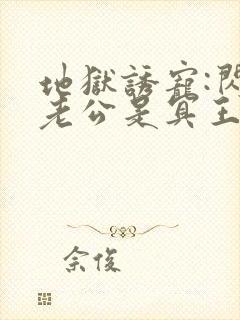 地獄誘寵:閃
老公是冥王
佘俊